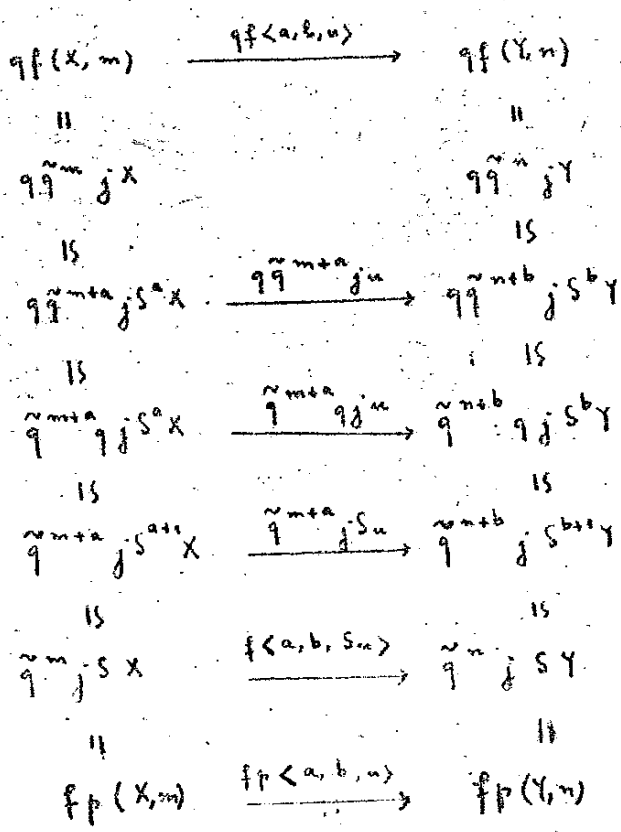 qf(X, m) $\xrightarrow{qf<a, b, u>}$ qf(Y, n)
॥ ॥
$q\tilde{q}^{m} j X$ $q\tilde{q}^{n} j Y$
IS IS
$q\tilde{q}^{m+a} j S^{a} X$ $\xrightarrow{q\tilde{q}^{m+a} j u}$ $q\tilde{q}^{n+b} j S^{b} Y$
IS IS
$\tilde{q}^{m+a} q j S^{a} X$ $\xrightarrow{\tilde{q}^{m+a} q j u}$ $\tilde{q}^{n+b} q j S^{b} Y$
IS IS
$\tilde{q}^{m+a} j S^{a+1} X$ $\xrightarrow{\tilde{q}^{m+a} j S u}$ $\tilde{q}^{n+b} j S^{b+1} Y$
IS IS
$\tilde{q}^{m} j S X$ $\xrightarrow{f<a, b, Su>}$ $\tilde{q}^{n} j S Y$
॥ ॥
fp(X, m) $\xrightarrow{fp<a, b, u>}$ fp(Y, n)